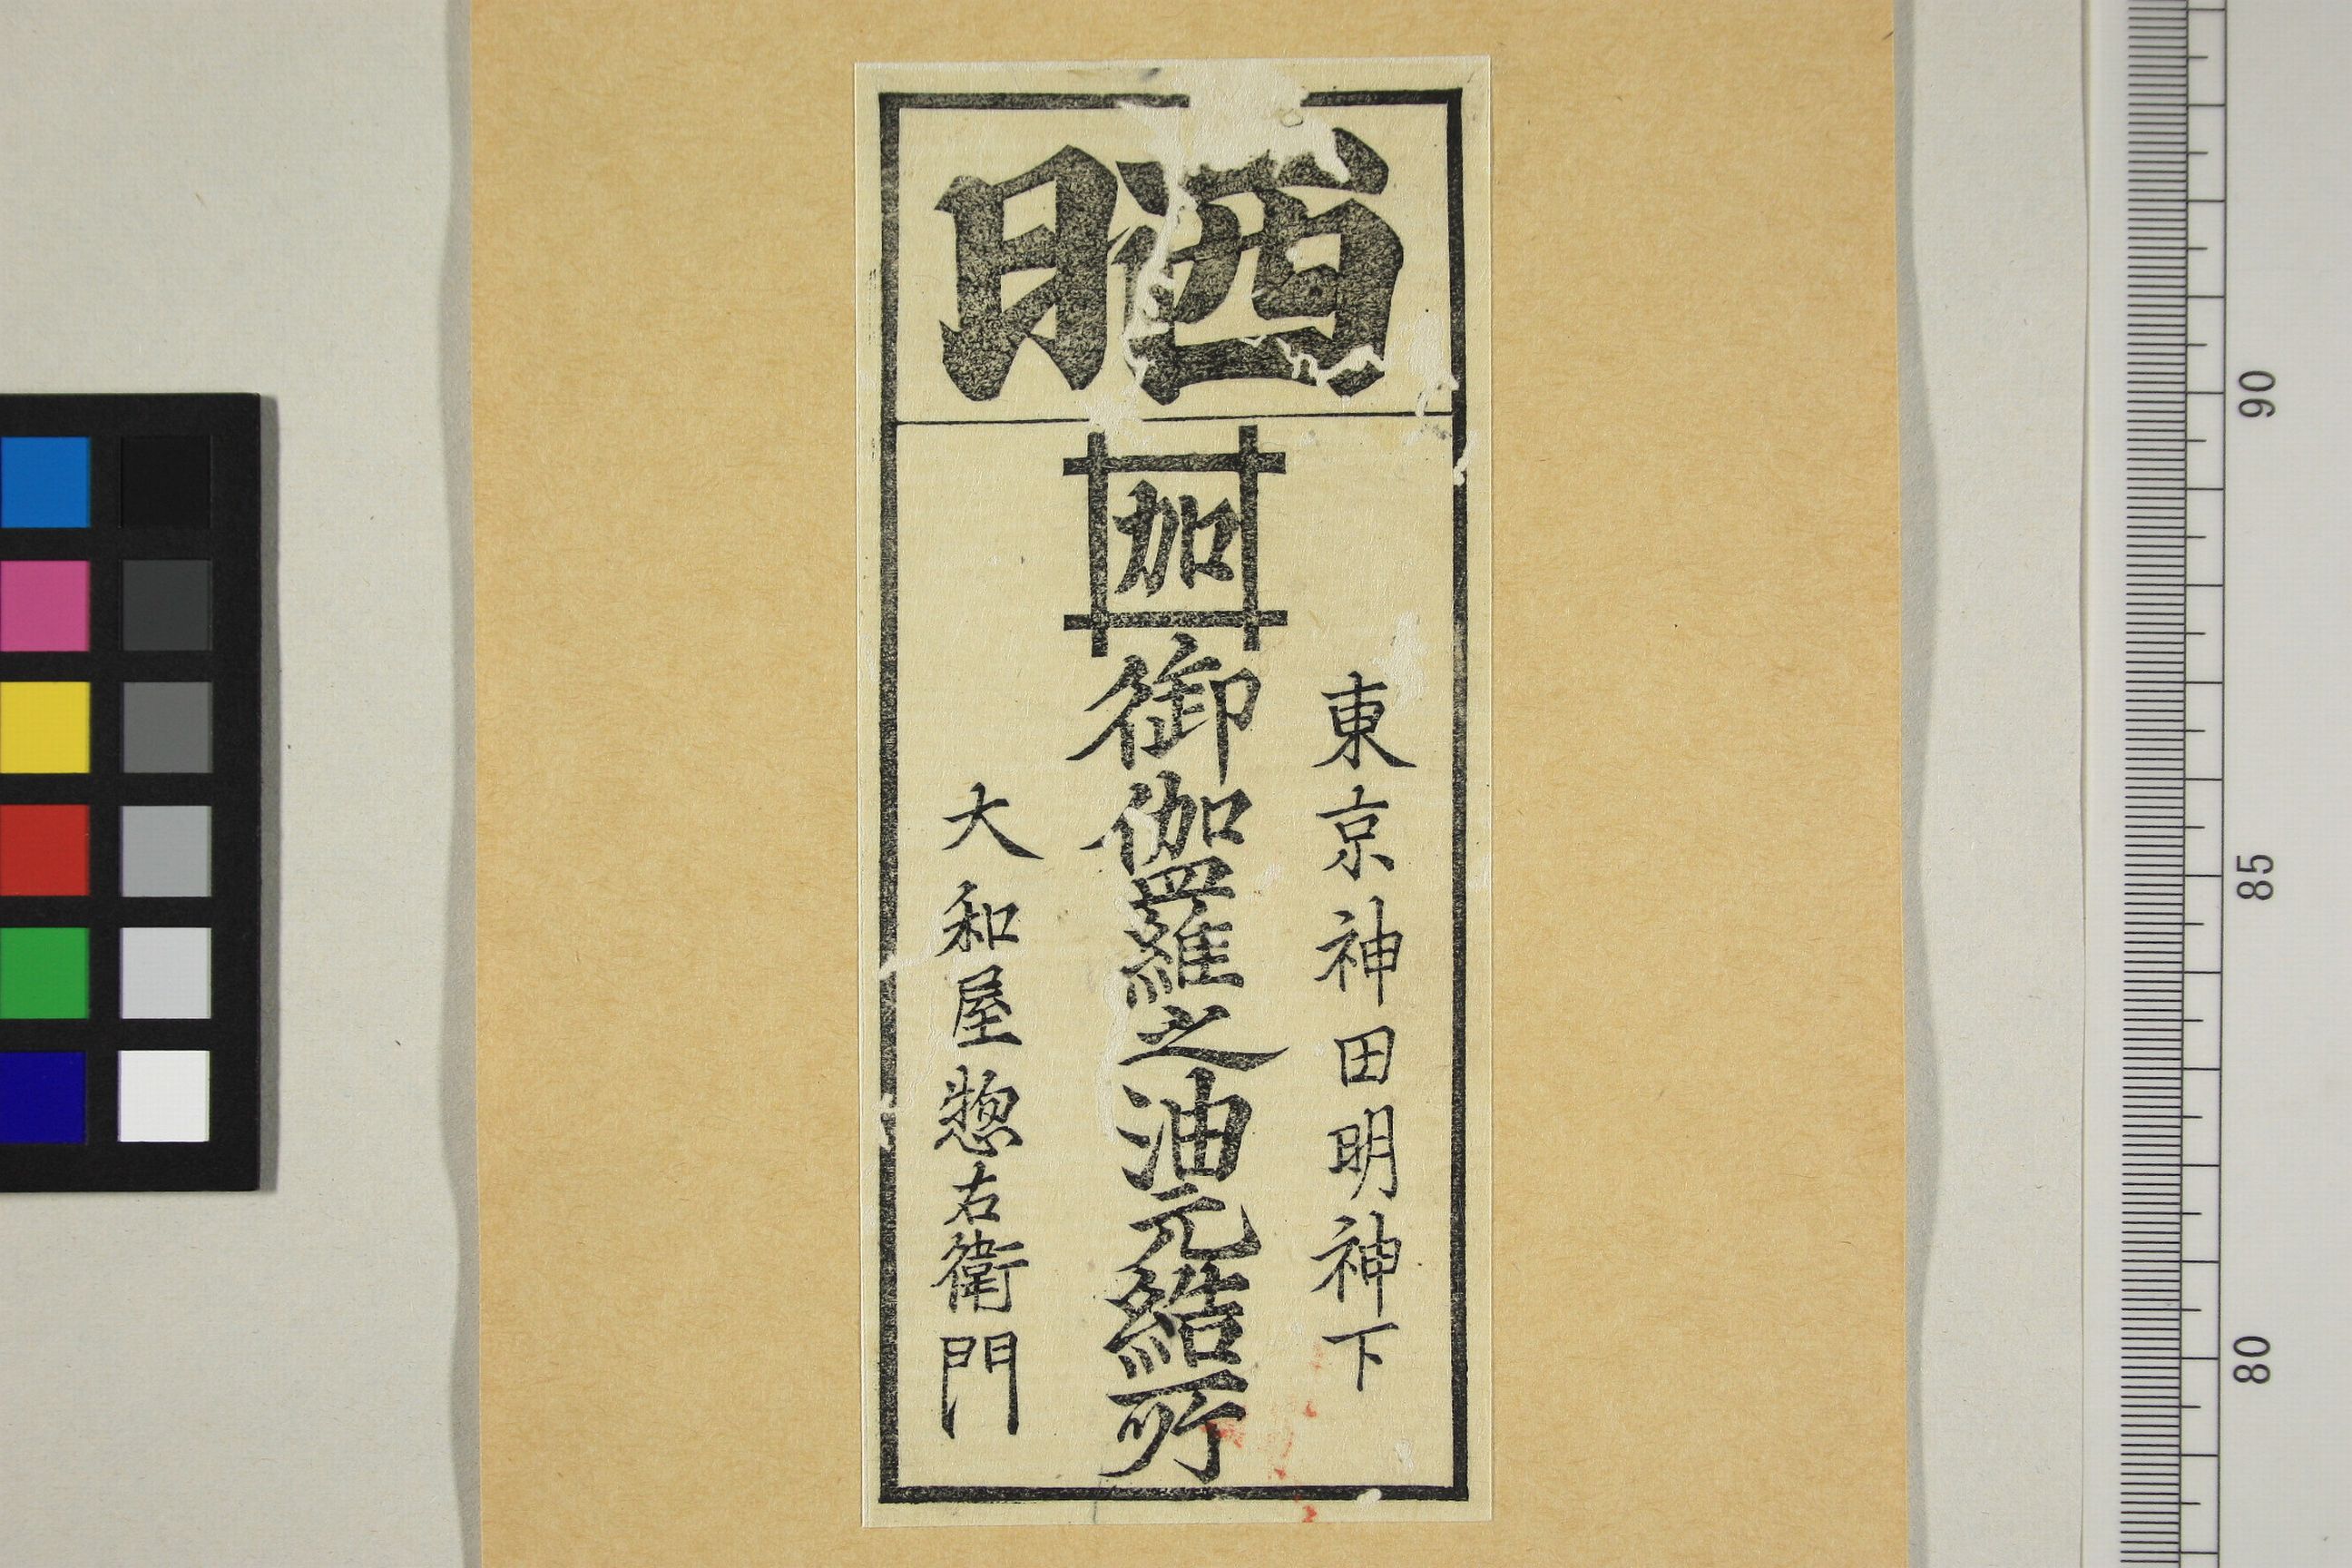 加
東京神田明神下
御伽羅之油元結所
大和屋惣右衛門
90
85
80